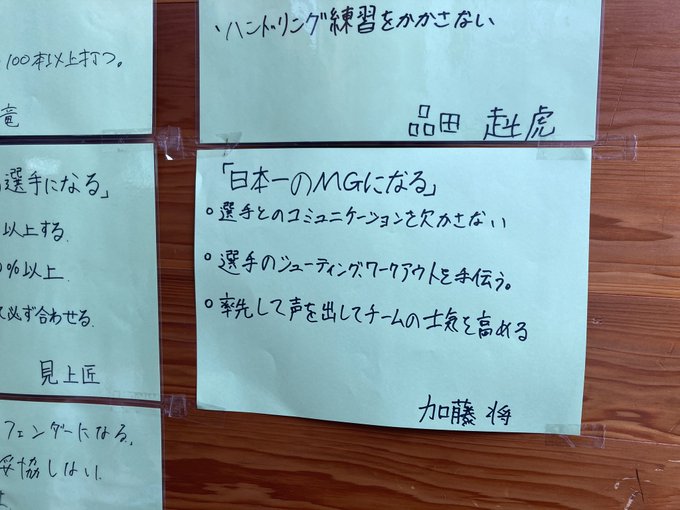 、ハンドリング練習をかかさない
品田 走虎
100本以上打つ。
竜
「日本一のMGになる」
○選手とのコミュニケーションを欠かさない
○選手のシューティング、ワークアウトを手伝う。
○率先して声を出してチームの士気を高める
加藤 将
選手になる」
以上する。
%以上
必ず合わせる。
見上匠
フェンダーになる。
妥協しない。